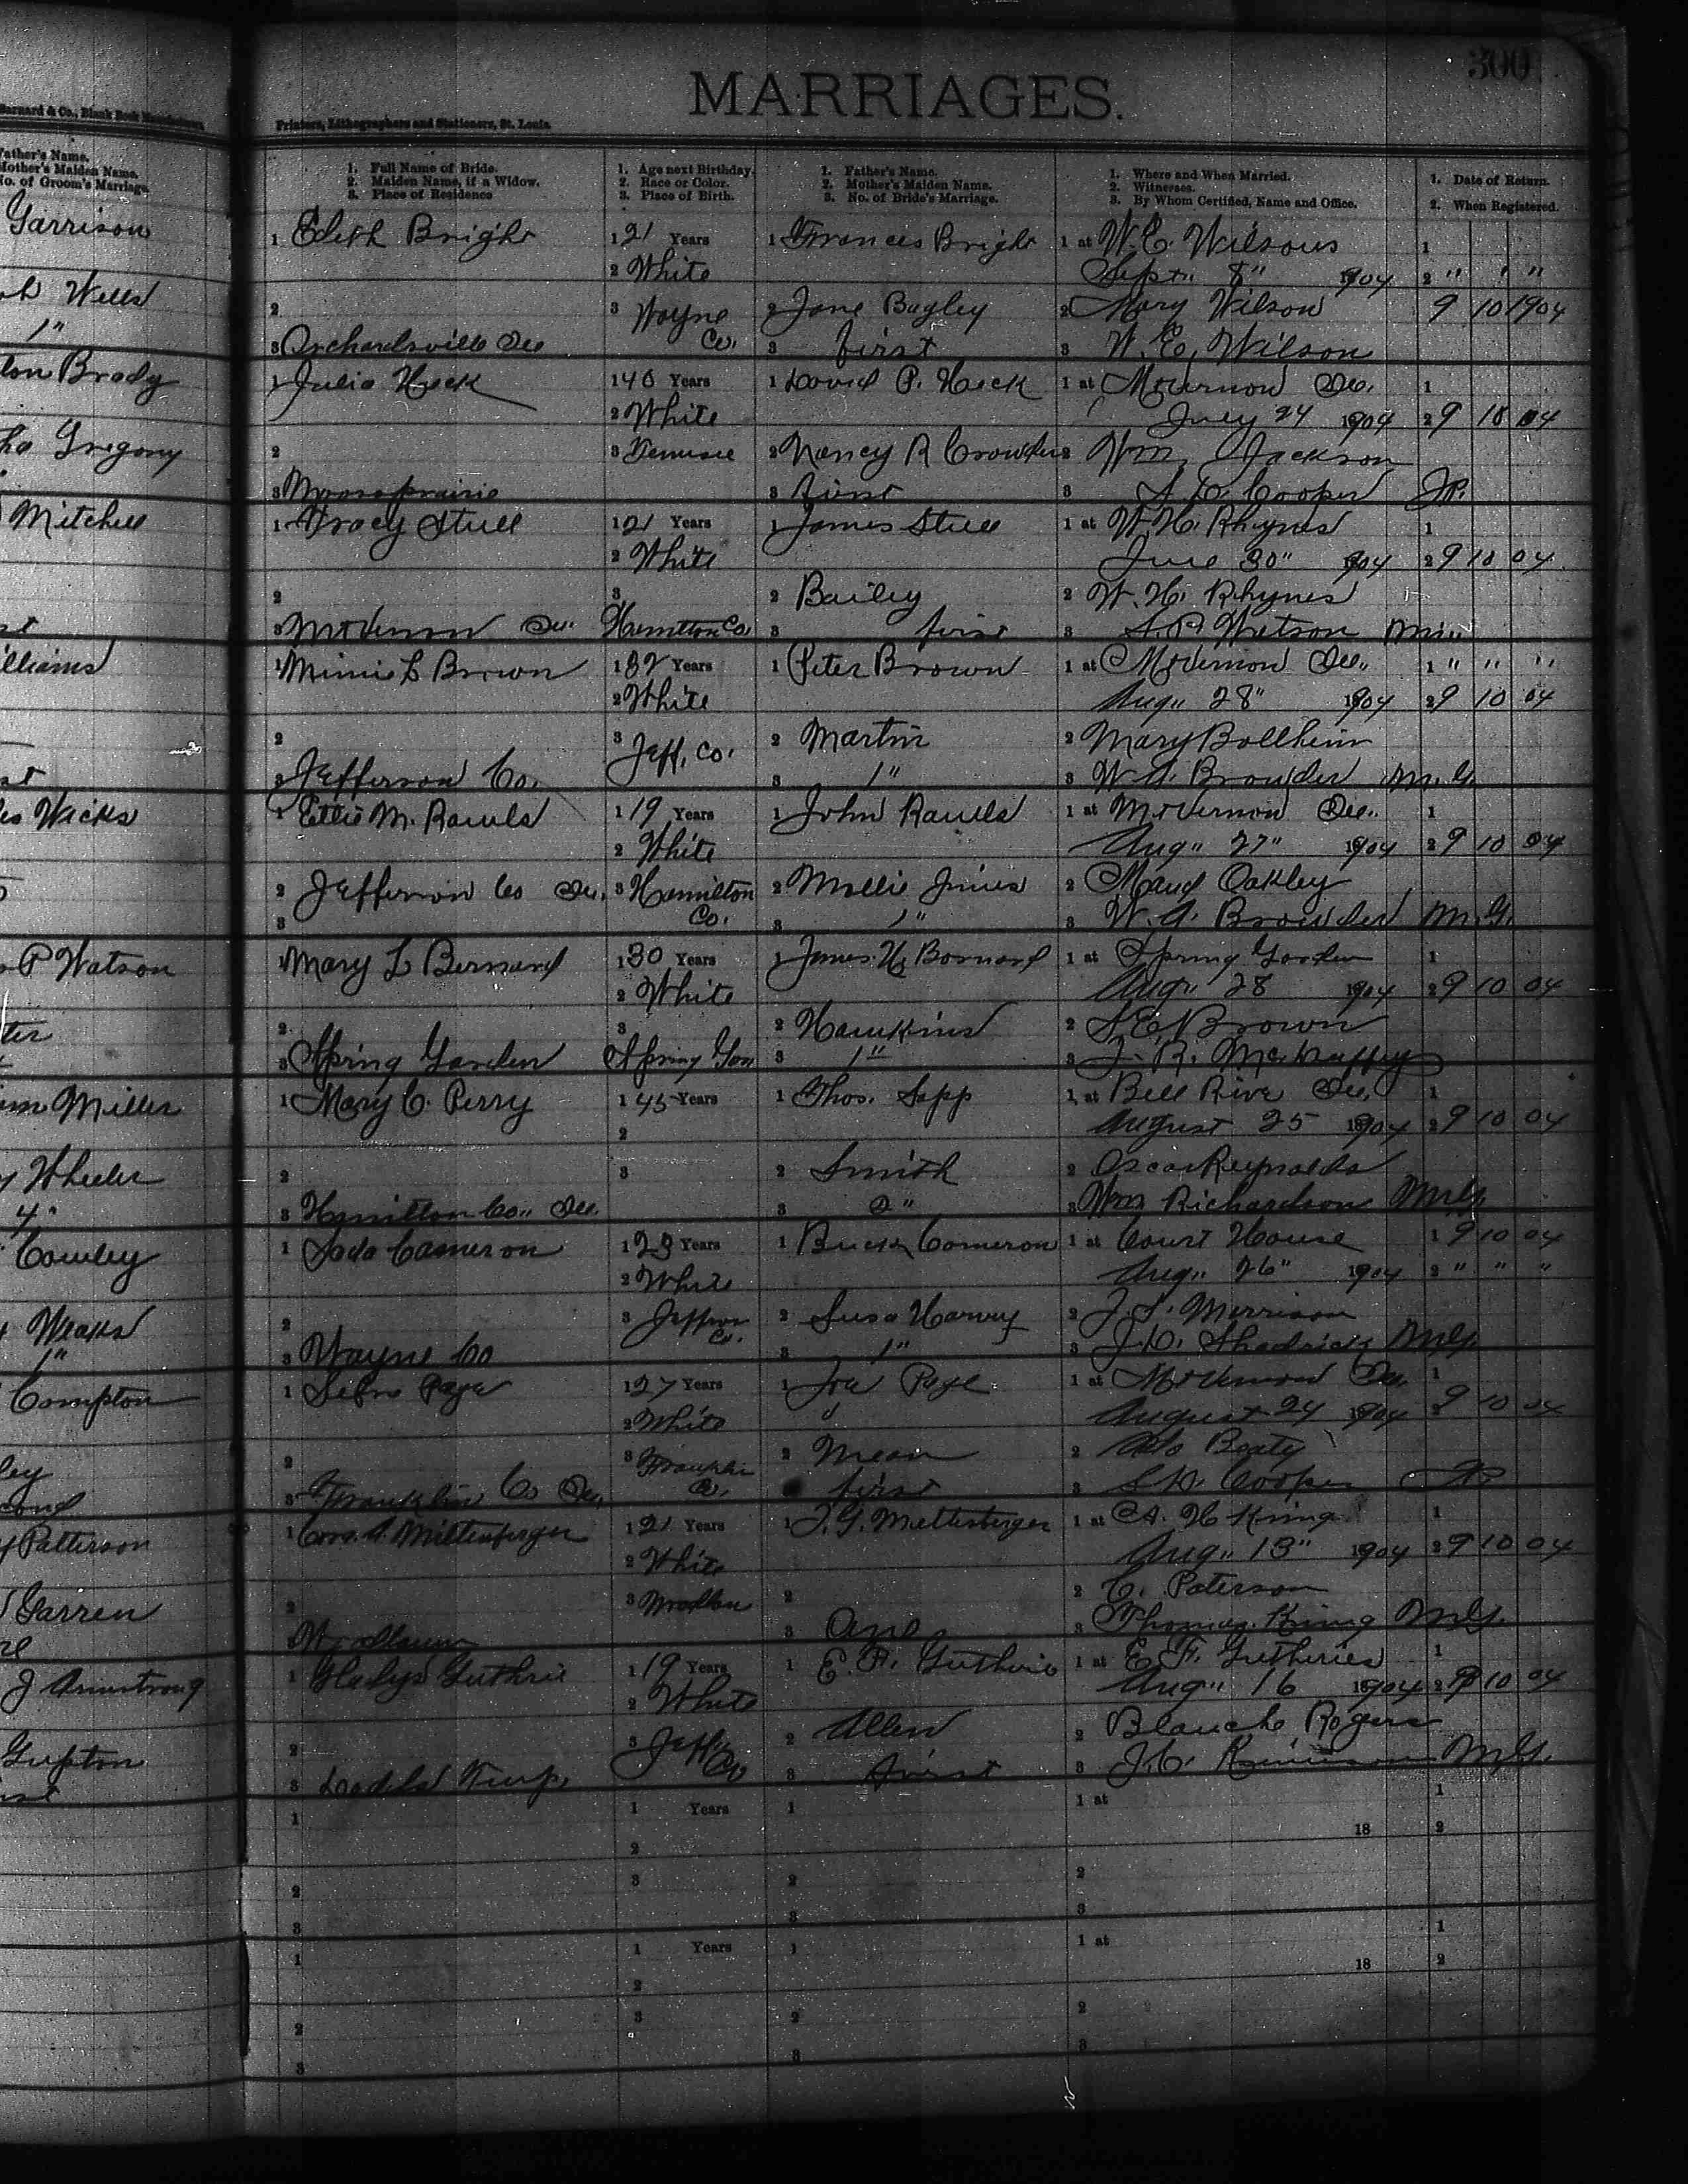 300
MARRIAGES.
Barnard & Co., Blank Book Manufacturers,
Printers, Lithographers and Stationers, St. Louis.
Father's Name.
Mother's Maiden Name.
No. of Groom's Marriage.
1. Full Name of Bride.
2. Maiden Name, if a Widow.
3. Place of Residence
1. Age next Birthday.
2. Race or Color.
3. Place of Birth.
1. Father's Name.
2. Mother's Maiden Name.
3. No. of Bride's Marriage.
1. Where and When Married.
2. Witnesses.
3. By Whom Certified, Name and Office.
1. Date of Return.
2. When Registered.
Garrison
Wells
1"
Brady
Gregory
Mitchell
illiams
Wicks
P Watson
ter
Miller
Wheeler
4"
Cowley
Weaks
1"
Compton
ley
cond
Patterson
Garren
J Armstrong
Gupton
1 Edith Bright 1 21 Years 1 Frances Bright 1 at W. E. Wilsons 1
2 White Sept. 8" 1904 2 " " "
2 3 Wayne 2 Jane Bagley 2 Mary Wilson 9 10 1904
3 Orchardsville Ill Co. 3 first 3 W. E. Wilson
1 Julia Heck 1 40 Years 1 David P. Heck 1 at Mt Vernon Ill. 1
2 White July 24 1904 2 9 10 04
2 3 2 Nancy R Crowder 2 Wm Jackson
3 Mooresprairie 3 first 3 Cooper JP.
1 Tracy Stull 1 21 Years 1 James Stull 1 at W. H. Rhynes 1
2 White June 30" 1904 2 9 10 04
2 3 2 Bailey 2 W. H. Rhynes
3 Mt Vernon Ill Hamilton Co. 3 first 3 Watson Min
1 Minnie L Brown 1 32 Years 1 Peter Brown 1 at Mt Vernon Ill. 1 " " "
2 White Aug" 28" 1904 2 9 10 04
2 3 Jeff. Co. 2 Martin 2 Mary Bollheim
3 Jefferson Co. 3 1" 3 W A. Browder M.G.
1 Ettie M. Rawls 1 19 Years 1 John Rawls 1 at Mt Vernon Ill. 1
2 White Aug" 27" 1904 2 9 10 04
2 Jefferson Co Ill. 3 Hamilton 2 Mollie Jones 2 Maud Oakley
3 Co. 3 1" 3 W. A. Browder M.G.
1 Mary L Bernard 1 30 Years 1 James Bernard 1 at Spring Garden 1
2 White Aug" 28 1904 2 9 10 04
2 3 2 Hawkins 2 S. E. Brown
3 Spring Garden Spring Gar 3 1" 3 J. R. McHaffey
1 Mary C. Perry 1 45 Years 1 Thos. Sapp 1 at Bell Rive Ill. 1
2 August 25 1904 2 9 10 04
2 3 2 Smith 2 Oscar Reynolds
3 Hamilton Co. Ill. 3 2" 3 Wm Richardson M.G.
1 Dada Cameron 1 23 Years 1 Buck Cameron 1 at Court House 1 9 10 04
2 White Aug" 26" 1904 2 " " "
2 3 Jefferson 2 Susa Harvey 2 J. S. Morrison
3 Wayne Co Co. 3 1" 3 Shadrick M.G.
1 Page 1 27 Years 1 Joe Page 1 at Mt Vernon Ill. 1
2 White August 24 1904 2 9 10 04
2 3 Franklin 2 2 Beaty
3 Franklin Co Ill. Co. first 3 Cooper
1 Cora A. Miltenberger 1 21 Years 1 J. G. Miltenberger 1 at A. H. King 1
2 White Aug" 13" 1904 2 9 10 04
2 3 2 2 C. Paterson
Woodlawn 3 One 3 Thomas King M.G.
1 Gladys Guthrie 1 19 Years 1 E. F. Guthrie 1 at E. F. Gutheries 1
2 White Aug" 16 1904 2 9 10 04
2 3 Jeff. 2 Allen 2 Blanche Rogers
3 Dodds Twp. Co 3 first 3 M.G.
1 1 Years 1 1 at 1
2 18 2
2 3 2 2
3 3 3
1 1 Years 1 1 at 1
2 18 2
2 3 2 2
3 3 3